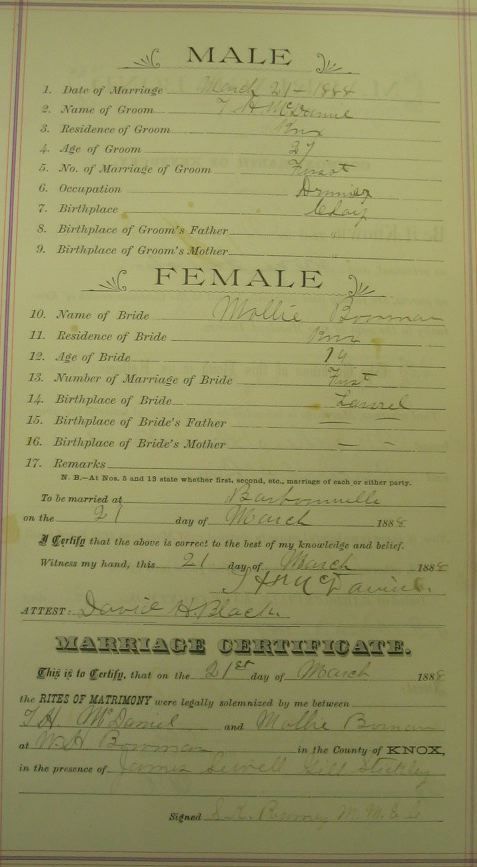 MALE
1. Date of Marriage March 21 - 1888
2. Name of Groom T H McDaniel
3. Residence of Groom Knox
4. Age of Groom 27
5. No. of Marriage of Groom First
6. Occupation
7. Birthplace Clay
8. Birthplace of Groom's Father "
9. Birthplace of Groom's Mother "
FEMALE
10. Name of Bride Mollie Bowman
11. Residence of Bride Knox
12. Age of Bride 19
13. Number of Marriage of Bride First
14. Birthplace of Bride Laurel
15. Birthplace of Bride's Father —
16. Birthplace of Bride's Mother — —
17. Remarks
N. B.—At Nos. 5 and 13 state whether first, second, etc., marriage of each or either party.
To be married at Barbourville
on the 21 day of March 1888
I Certify that the above is correct to the best of my knowledge and belief.
Witness my hand, this 21 day of March 1888
T H McDaniel
ATTEST: David H Black
MARRIAGE CERTIFICATE.
This is to Certify, that on the 21st day of March 1888
the RITES OF MATRIMONY were legally solemnized by me between
T. H. McDaniel and Mollie Bowman
at W H Bowman in the County of KNOX,
in the presence of James Sewell Gill
Signed S. K. M. M. E. C